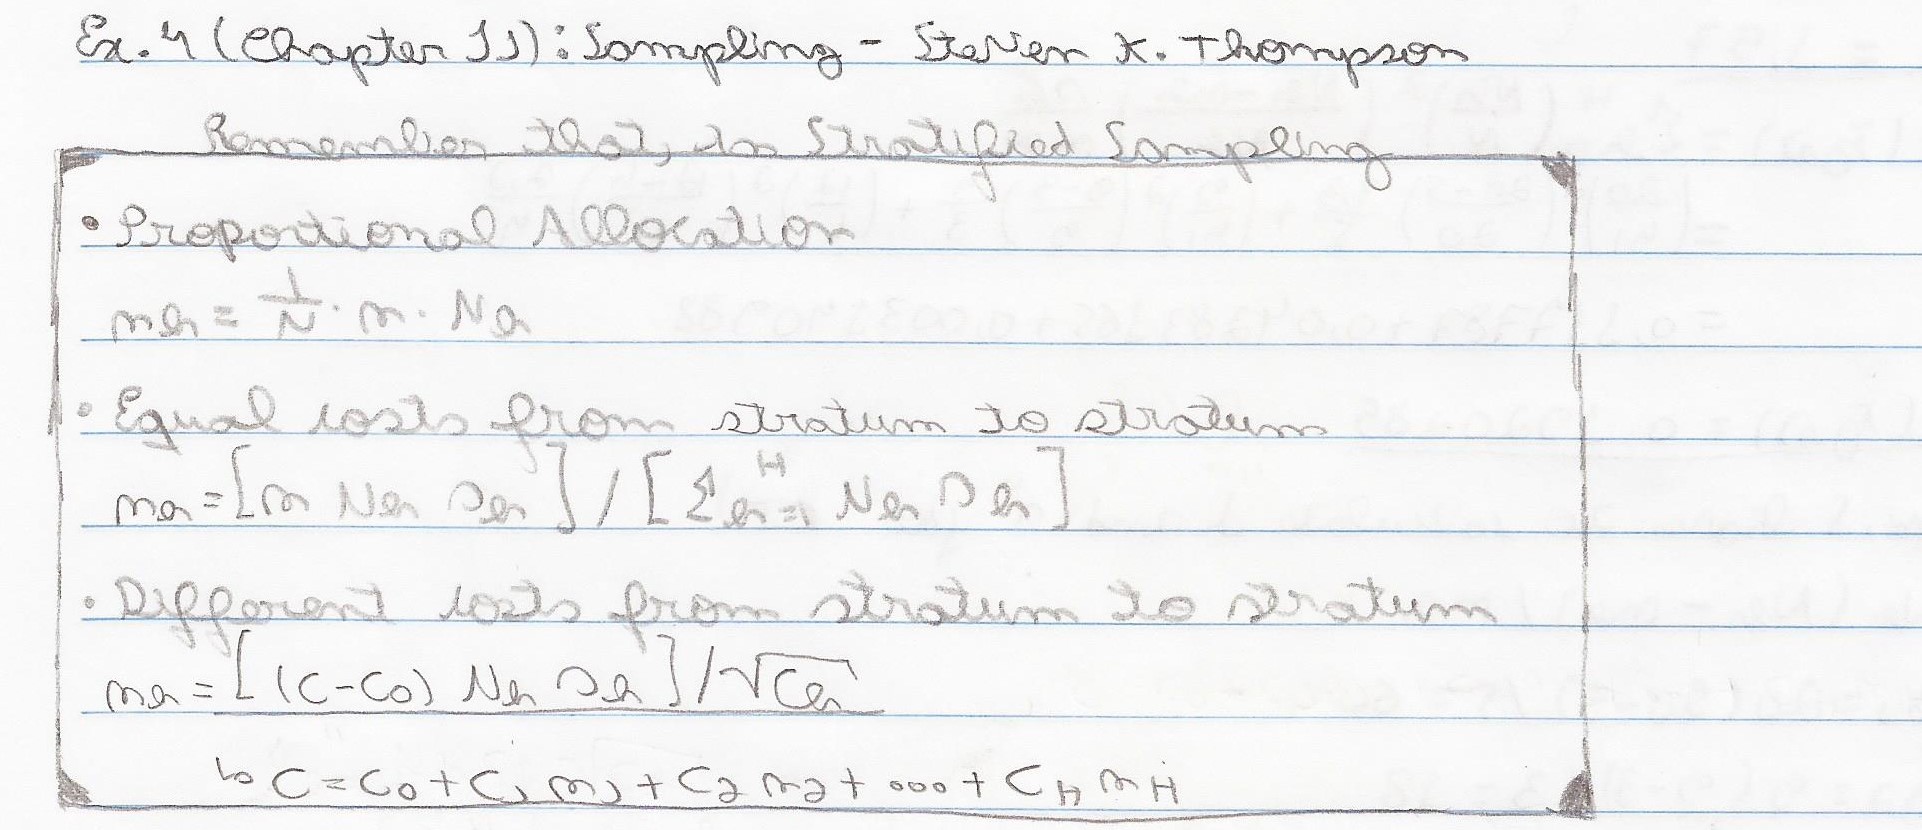 Ex. 4 (Chapter 11): Sampling - Steven K. Thompson
Remember that, to Stratified Sampling
• Proportional Allocation
nh = 1/N · n · Nh
• Equal costs from stratum to stratum
nh = [n Nh σh] / [Σh=1^H Nh σh]
• Different costs from stratum to stratum
nh = [(C-C0) Nh σh] / √Ch
↳ C = C0 + C1 n1 + C2 n2 + ... + CH nH